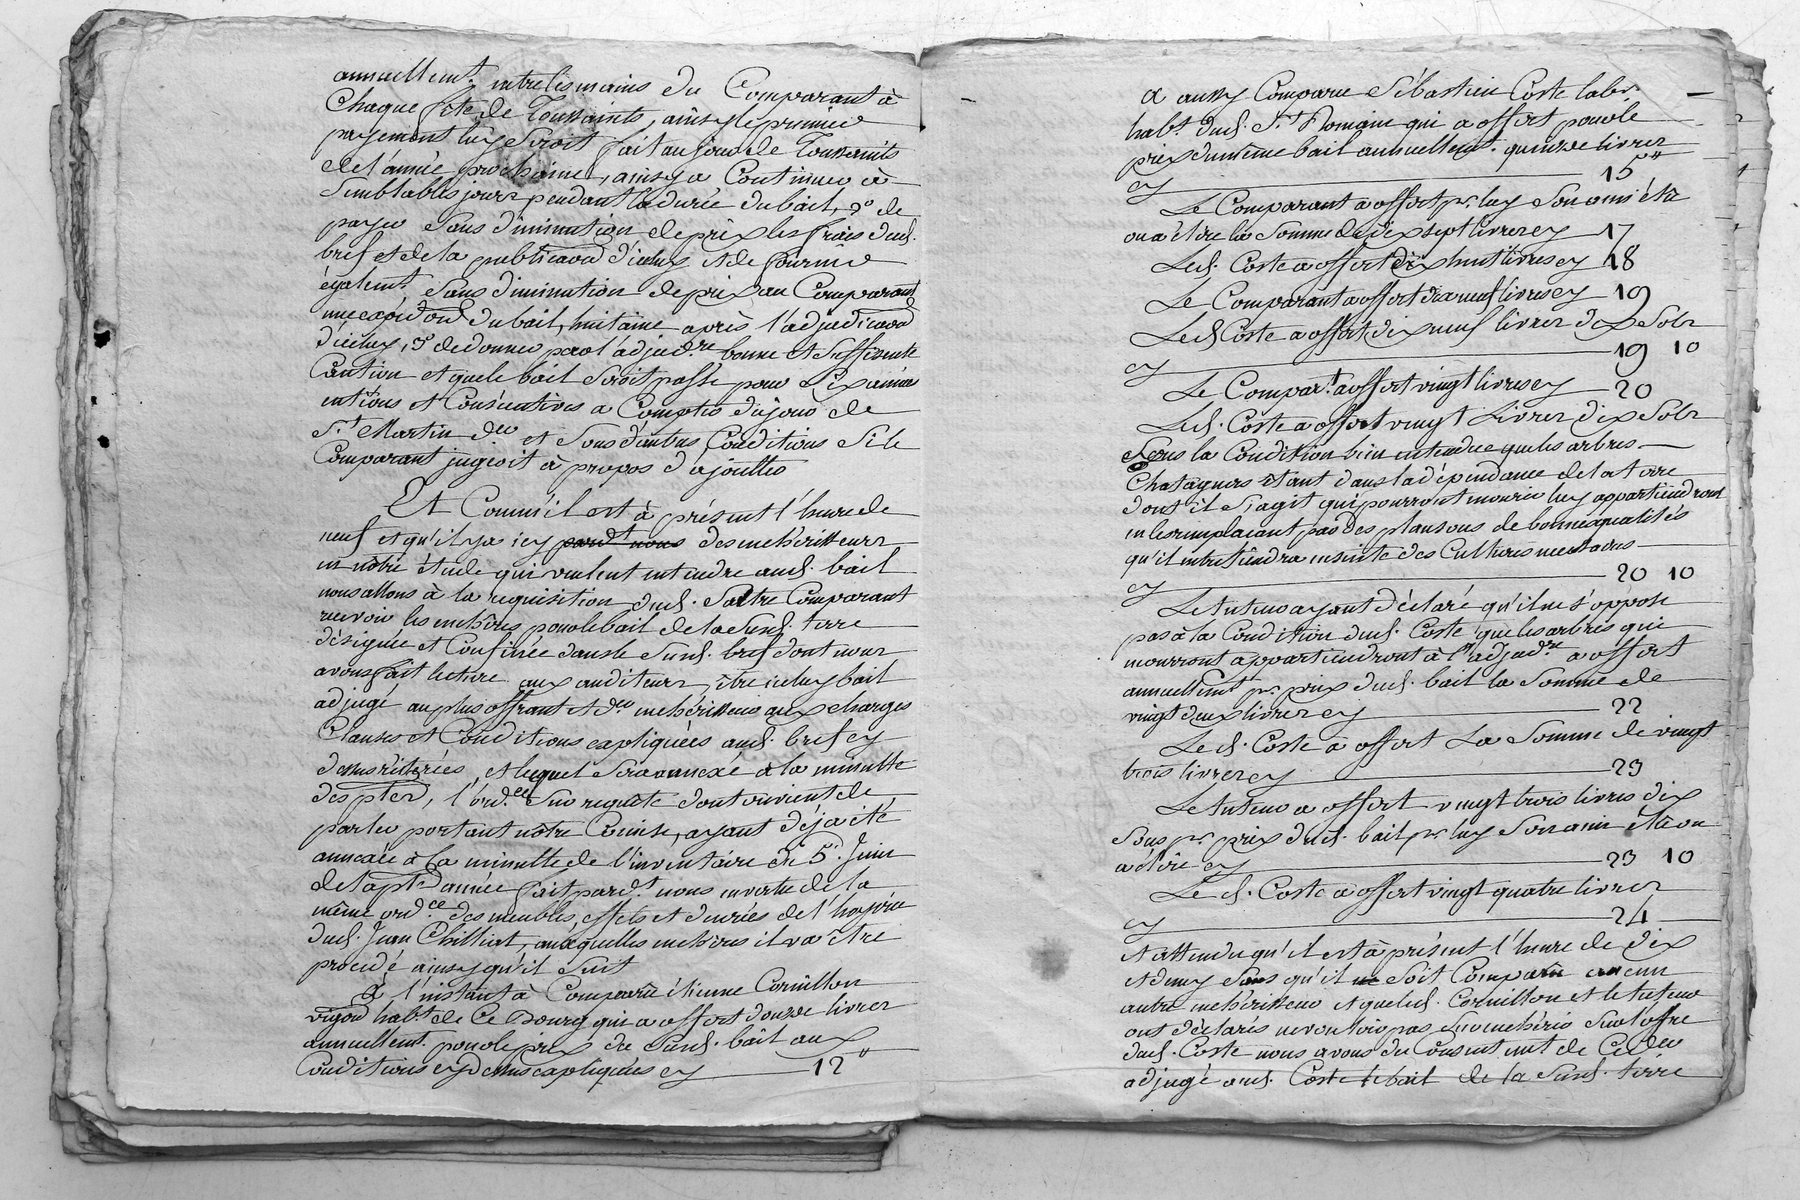 annuellemt. entre les mains du Comparant à
Chaque fête de Toussaints, ainsy le premier
payement luy seroit fait au jour de Toussaints
de l'année prochaine, ainsy a Continuer à
Semblables jours pendant la durée du bail, 2° de
payer Sans diminution de prix les frais dud.
bref et de la publicaon d'iceluy et de fournir
égalemt. Sans diminution de prix au Comparant
une expédon du bail, huitaine après l'adjudicaon
d'iceluy, 3° de donner par l'adjudre. bonne et Suffisante
Caution et que le bail Seroit passé pour Six années
entières et Consécutives a Compter du jour de
St. Martin der. et Sous d'autres Conditions Si le
Comparant jugeoit à propos d'ajouttes
Et Comme il est à présent l'heure de
neuf et qu'il y a icy pardt. nous des enchérisseurs
en nôtre étude qui veulent entendre aud. bail
nous allons à la requisition dud. Sr. Comparant
recevoir les enchères pour le bail de la Susd. terre
désignée et Confinée dans le Susd. bref dont nous
avons fait lecture aux auditeurs, être iceluy bail
adjugé au plus offrant et der. enchérisseur aux charges
Clauses et Conditions expliquées aud. bref ey
dessus réitérées, et lequel Sera annexé à la minutte
des ptes, l'ordce. Sur requête dont vient de
parler portant nôtre Comise, ayant déja été
annexée à la minutte de l'inventaire du 5e. Juin
de la pte année fait pardt. nous en vertu de la
même ordce. des meubles, effets et denrées de l'hoyrie
dud. Jean Chilliat, auxquelles enchères il va être
procédé ainsy qu'il Suit
A l'instant à Comparû étienne Cornillon
vigon habt. de Ce Bourg qui a offert douze livres
annuellemt. pour le prix du Susd. bail aux
Conditions cy dessus expliquées cy 12"
A aussy Comparu Sébastien Coste labr.
habt. dud. St. Romain qui a offert pour le
prix du même bail annuellemt. quinze livres
cy 15"
Le Comparant a offert pr. luy Son amy élû
ou à élire la Somme de dix sept livres cy 17
Led. Coste a offert dix huit livres cy 18
Le Comparant a offert dix neuf livres cy 19
Led. Coste a offert dix neuf livres dix Sols
cy 19 10
Le Compart. a offert vingt livres cy 20
Led. Coste a offert vingt Livres dix Sols
Sous la Condition bien entendue que les arbres
Chataigners étant dans la dépendance de la terre
dont il S'agit qui pourront mourir luy appartiendront
en les remplaçant par des plansons de bonne qualités
qu'il entretiendra ensuite des Cultures nécessaires
cy 20 10
Le tuteur ayant déclaré qu'il ne S'oppose
pas à la Condition dud. Coste que les arbres qui
mourront appartiendront à l'adjudre. a offert
annuellemt. pr. prix dud. bail la Somme de
vingt deux livres cy 22
Led. Coste à offert La Somme de vingt
trois livres cy 23
Le tuteur a offert vingt trois livres dix
Sous pr. prix dud. bail pr. luy Son ami élû ou
a élire cy 23 10
Le d. Coste a offert vingt quatre livres
cy 24
et attendu qu'il est à présent l'heure de dix
et demy Sans qu'il ne Soit Comparû aucun
autre enchérisseur et que led. Cornillon et le tuteur
ont déclarés ne vouloir pas Surenchérir Sur l'offre
dud. Coste nous avons du Consentemt. de Ce der.
adjugé aud. Coste le bail de la Susd. terre